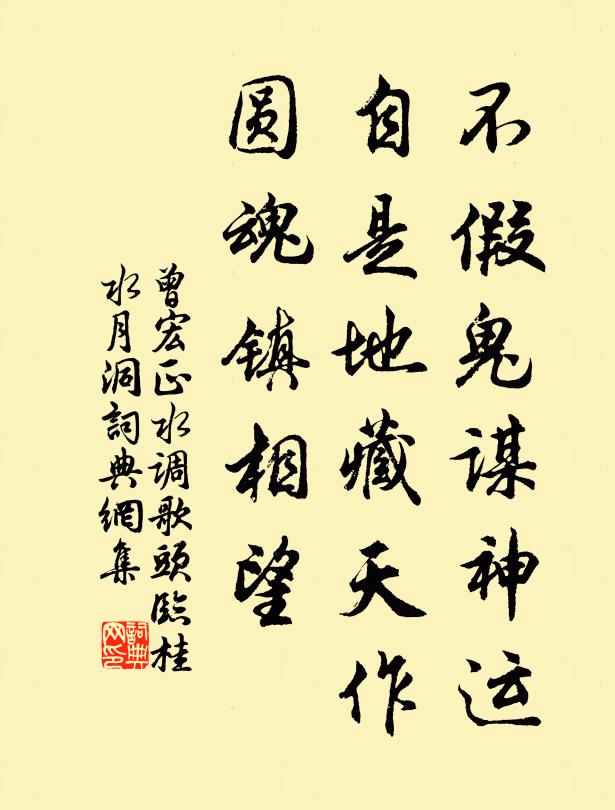 不假鬼谋神运
自是地藏天作
圆魂镇相望
曾宏正水调歌頭臨桂
水月洞詞典網集
詞典网印